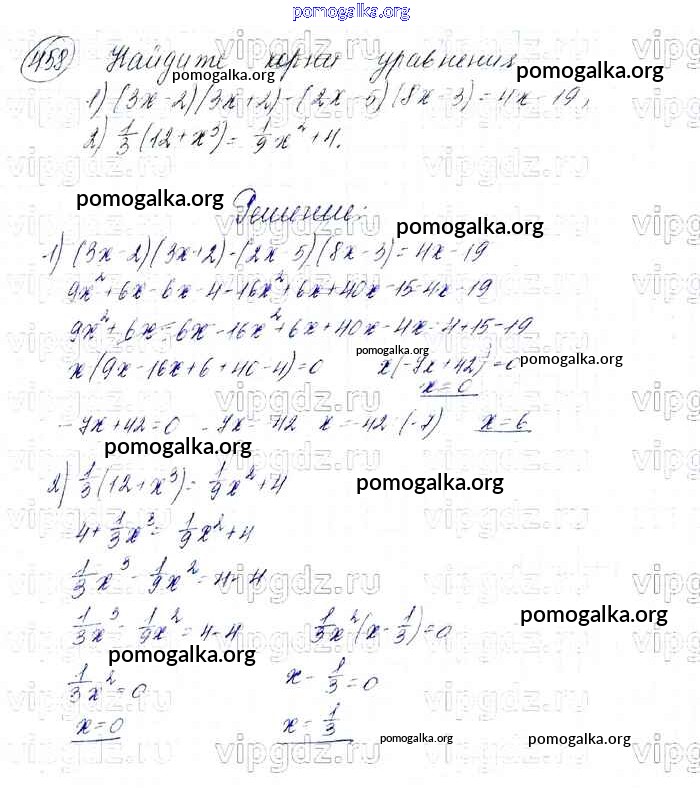 pomogalka.org
458 Найдите корни уравнения
pomogalka.org pomogalka.org
1) (3x-2)(3x+2)-(2x-5)(8x-3)=4x-19,
2) 1/3(12+x³)=1/9x²+4.
pomogalka.org
Решение:
pomogalka.org
1) (3x-2)(3x+2)-(2x-5)(8x-3)=4x-19
9x²+6x-6x-4-16x²+6x+40x-15-4x-19
9x²+6x-6x-16x²+6x+40x-4x-4+15-19
pomogalka.org pomogalka.org
x(9x-16x+6+40-4)=0 x(-7x+42)=0
x=0
pomogalka.org
-7x+42=0 -7x=-42 x=-42:(-7) x=6
pomogalka.org
2) 1/3(12+x³)=1/9x²+4
pomogalka.org
4+1/3x³=1/9x²+4
1/3x³-1/9x²=4-4
pomogalka.org
1/3x³-1/9x²=4-4 1/3x²(x-1/3)=0
pomogalka.org
1/3x²=0 x-1/3=0
x=0 x=1/3
pomogalka.org pomogalka.org
vipgdz.ru